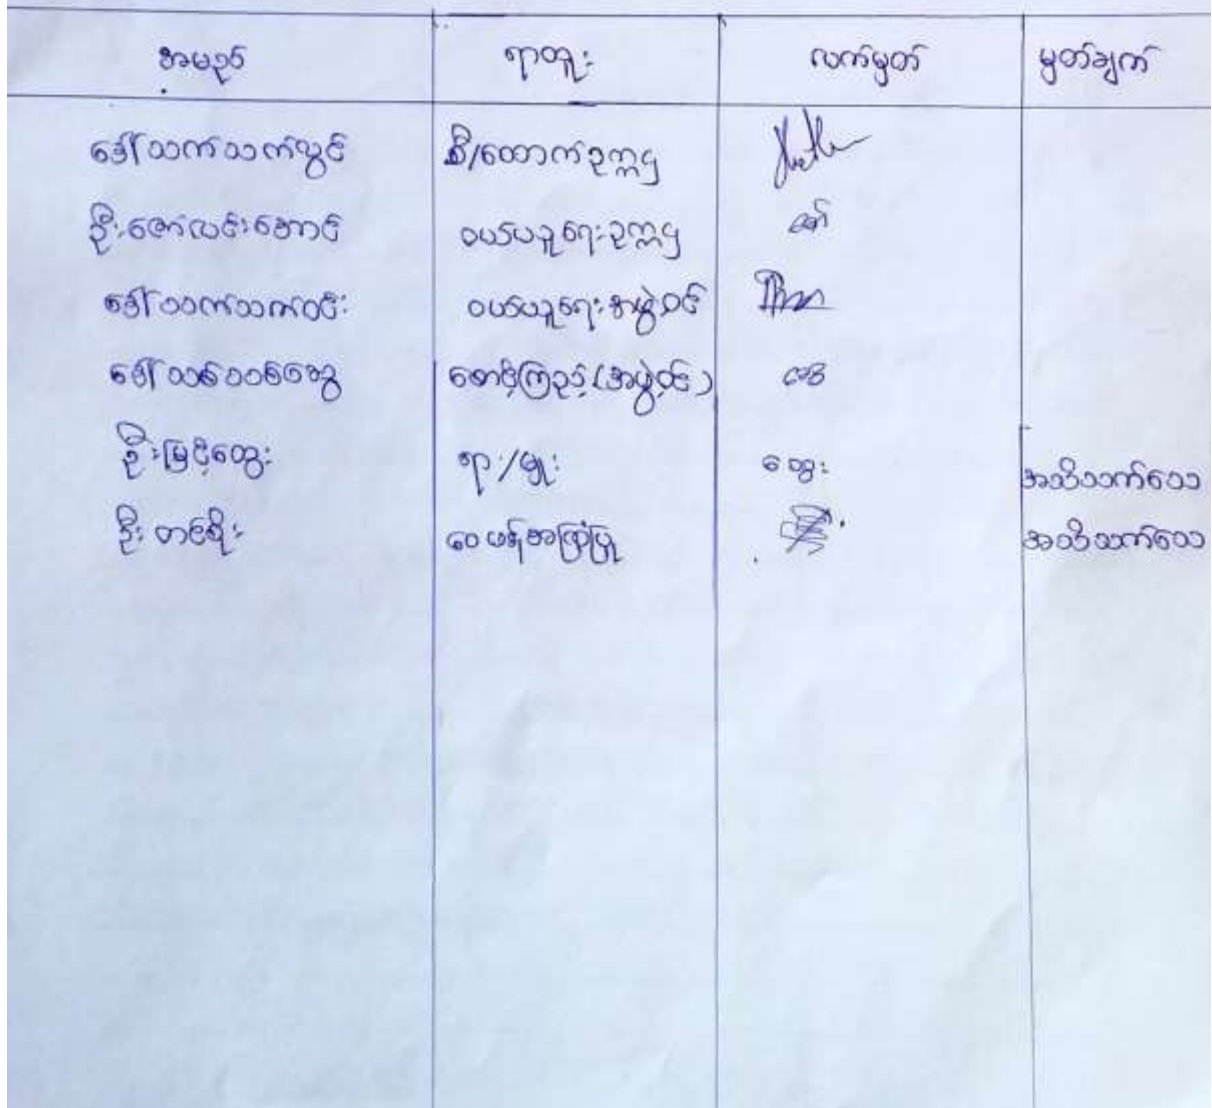 အမည် ရာထူး လက်မှတ် မှတ်ချက်
ဒေါ်သက်သက်လွင် စီ/ထောက်ဥက္ကဌ
ဦးဇော်လင်းအောင် ဝယ်ယူရေးဥက္ကဌ ဇော်
ဒေါ်သက်သက်ဝင်း ဝယ်ယူရေးအဖွဲ့ဝင်
ဒေါ်သစ်သစ်ဆွေ စောင့်ကြည့်(အဖွဲ့ဝင်)
ဦးမြင့်ထွေး ရာ/မှူး ထွေး အသိသက်သေ
ဦးတင်စိုး ဝေဖန်အကြံပြု အသိသက်သေ